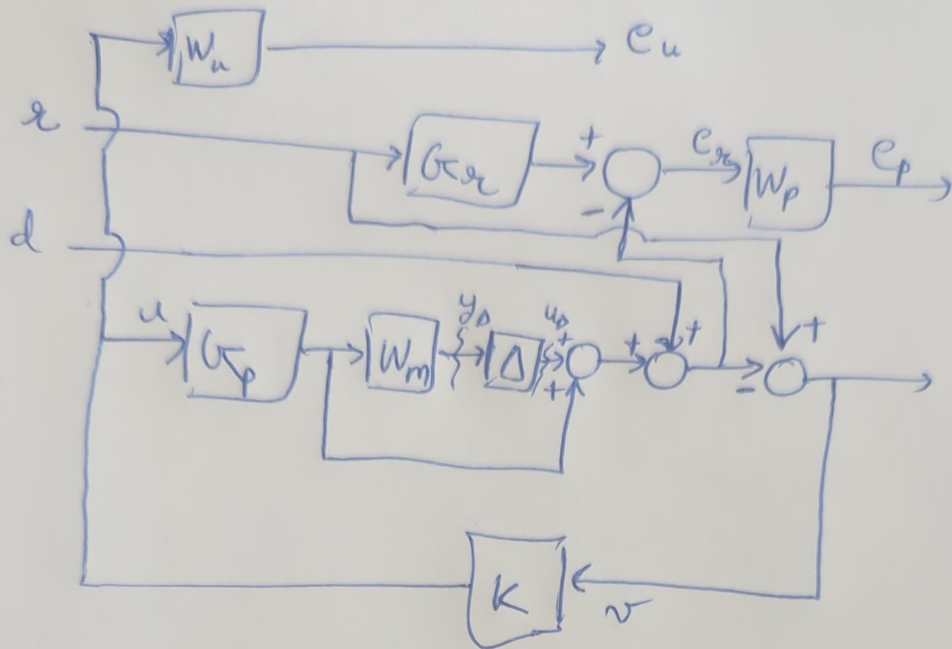 W_u e_u
r G_r + e_r W_p e_p
-
d
u G_p W_m y_Δ Δ u_Δ + + + + - +
K v